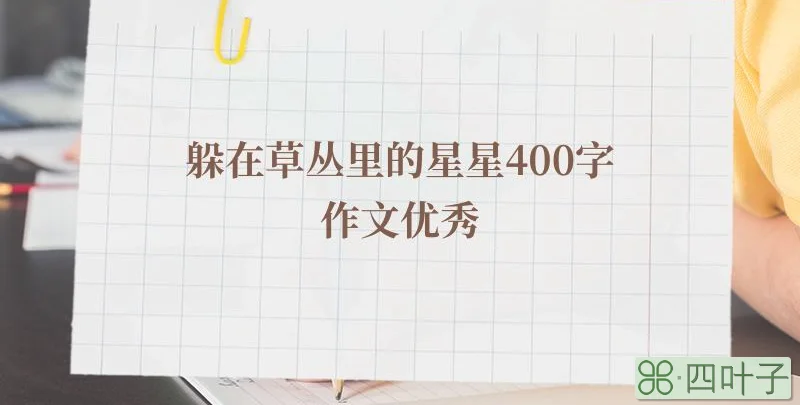 躲在草丛里的星星400字
作文优秀
四叶子